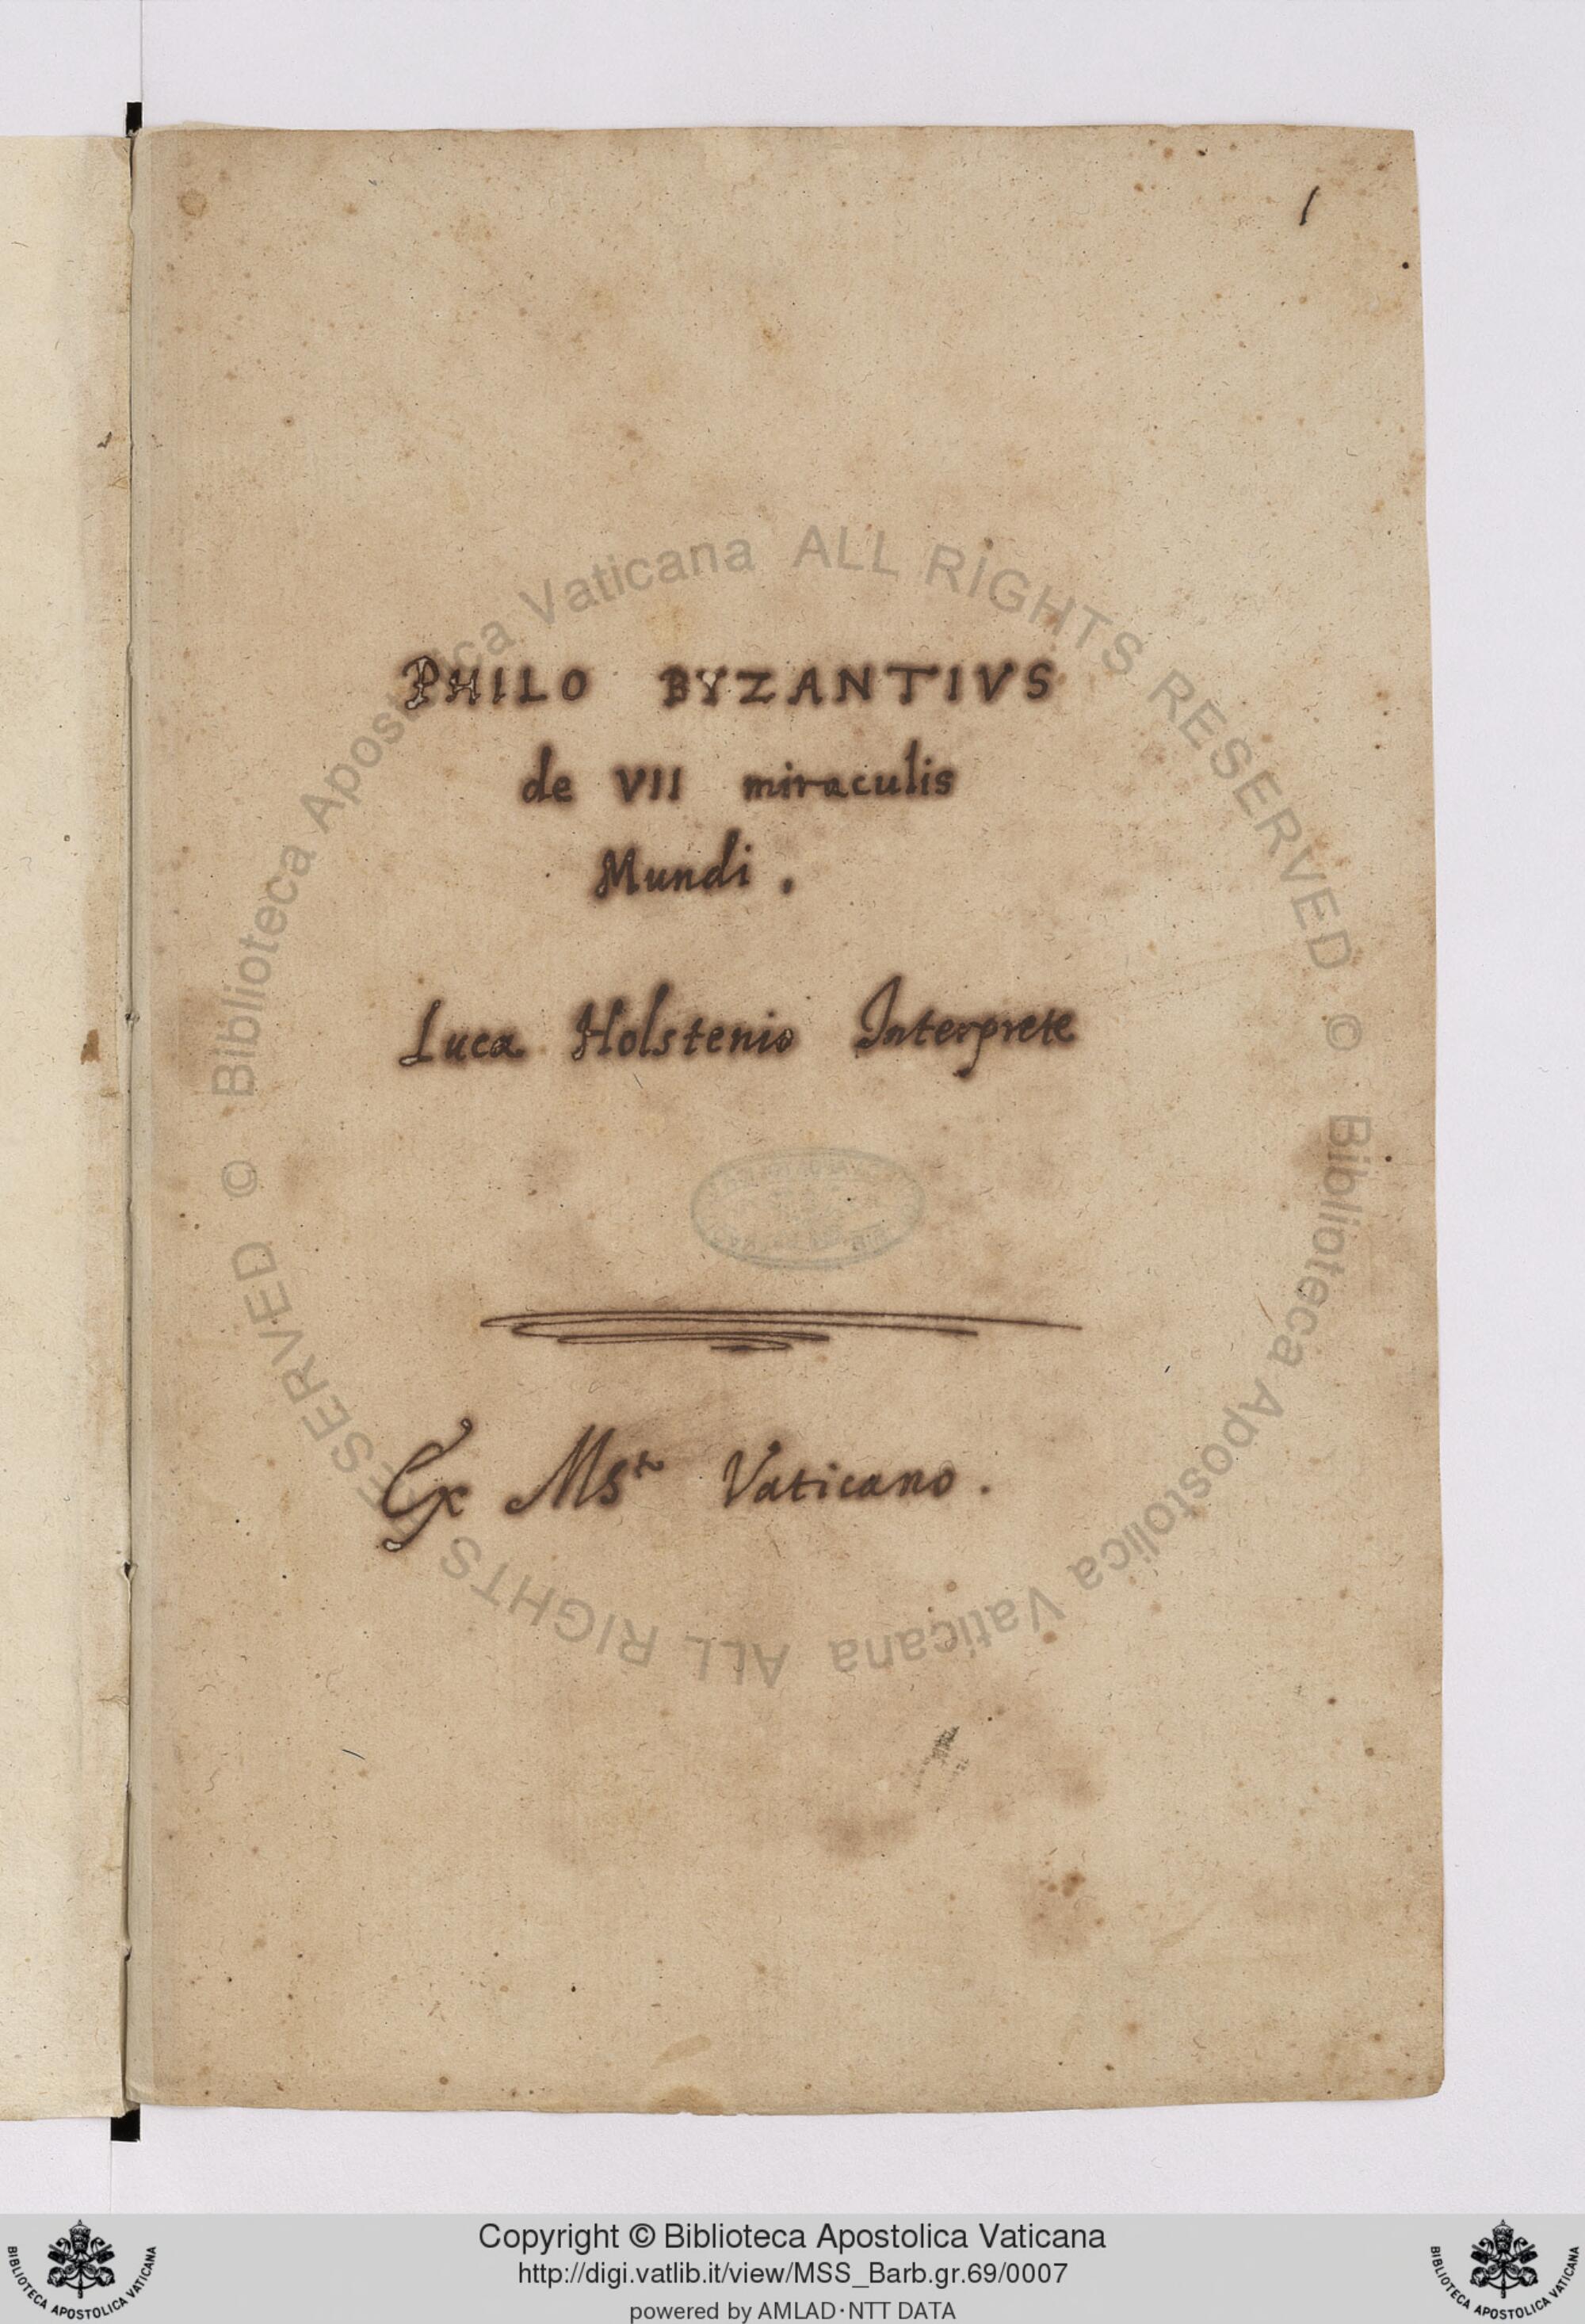 1
PHILO BYZANTIVS
de VII miraculis
Mundi.
Luca Holstenio Interprete
Ex Msto Vaticano.
© Biblioteca Apostolica Vaticana ALL RIGHTS RESERVED
© Biblioteca Apostolica Vaticana ALL RIGHTS RESERVED
Copyright © Biblioteca Apostolica Vaticana
http://digi.vatlib.it/view/MSS_Barb.gr.69/0007
powered by AMLAD·NTT DATA
BIBLIOTECA APOSTOLICA VATICANA
BIBLIOTECA APOSTOLICA VATICANA